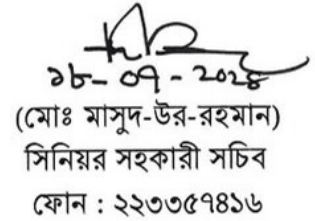 ১৮-০৭-২০২৪
(মোঃ মাসুদ-উর-রহমান)
সিনিয়র সহকারী সচিব
ফোন : ২২৩৩৫৭৪১৬